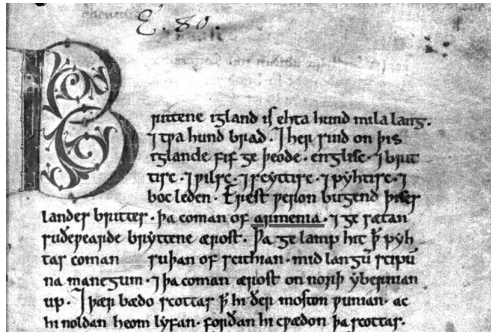 E. 80.
Brittene igland is ehta hund mila lang.
⁊ tƿa hund brad. ⁊ her sind on þis
iglande fif ge þeode. englisc. ⁊ brit
tisc. ⁊ ƿilsc. ⁊ scyttisc. ⁊ pyhtisc. ⁊
boc leden. Erest ƿeron bugend þises
landes brittes. þa coman of armenia. ⁊ ge sætan
suðeƿearde bryttene ærost. Þa ge lamp hit ꝥ pyh
tas coman suþan of scithian. mid langū scipū
na manegum. ⁊ þa coman ærost on norþ ybernian
up. ⁊ þær bædo scottas ꝥ hi ðer moston ƿunian. ac
hi noldan heom lyfan. forðan hi cƿædon þa scottas.